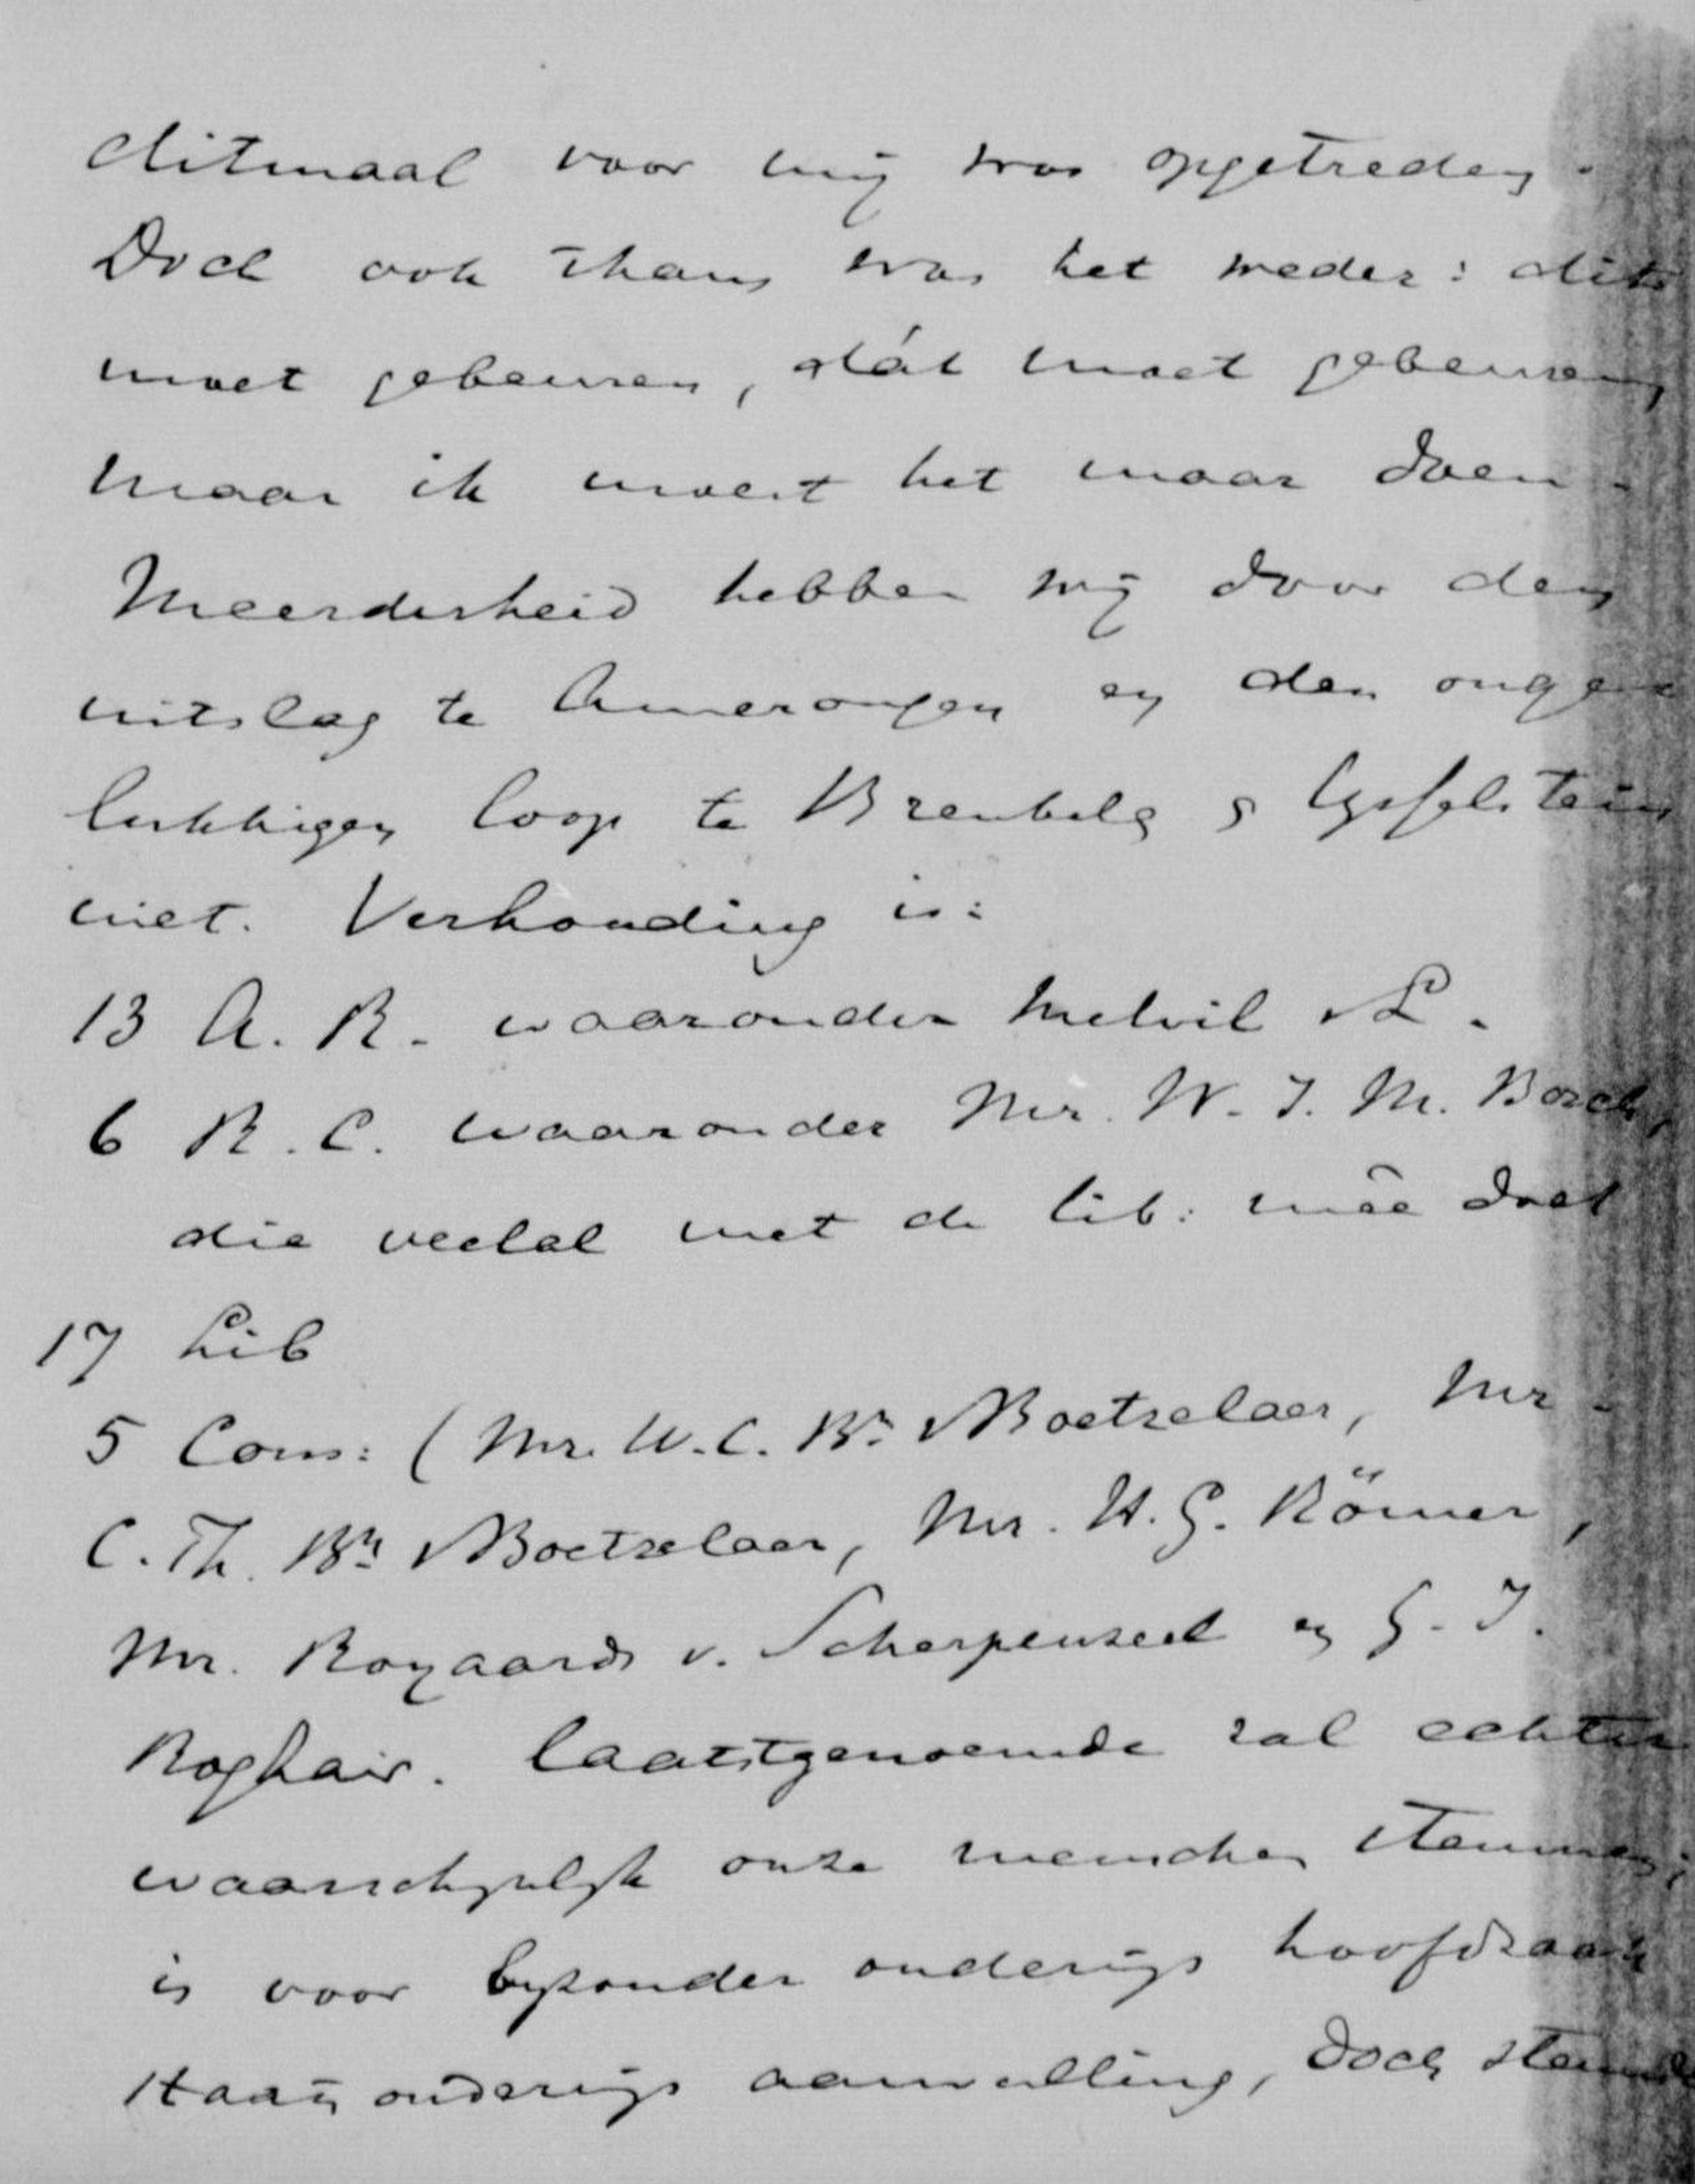 ditmaal voor mij was opgetreden.
Doch ook thans was het weder: dit
moet gebeuren, dát moet gebeuren,
maar ik moest het maar doen.
Meerderheid hebben wij door den
uitslag te Amerongen en den onge-
lukkigen loop te Breukele & IJsselstein
niet. Verhouding is:
13 A. R. waaronder Melvil v L.
6 R. C. waaronder Mr. W. J. M. Bosch,
die veelal met de lib: mêe doet
17 Lib
5 Cons: (Mr. W. C. Bn v Boetzelaer, Mr.
C. Th. Bn v Boetzelaer, Mr. H. G. Römer,
Mr. Royaards v. Scherpenzeel en G. J.
Roghair. laatstgenoemde zal echter
waarschijnlijk onze menschen stemmen;
is voor byzonder onderwijs hoofdzaak
staats onderwijs aanvulling, doch